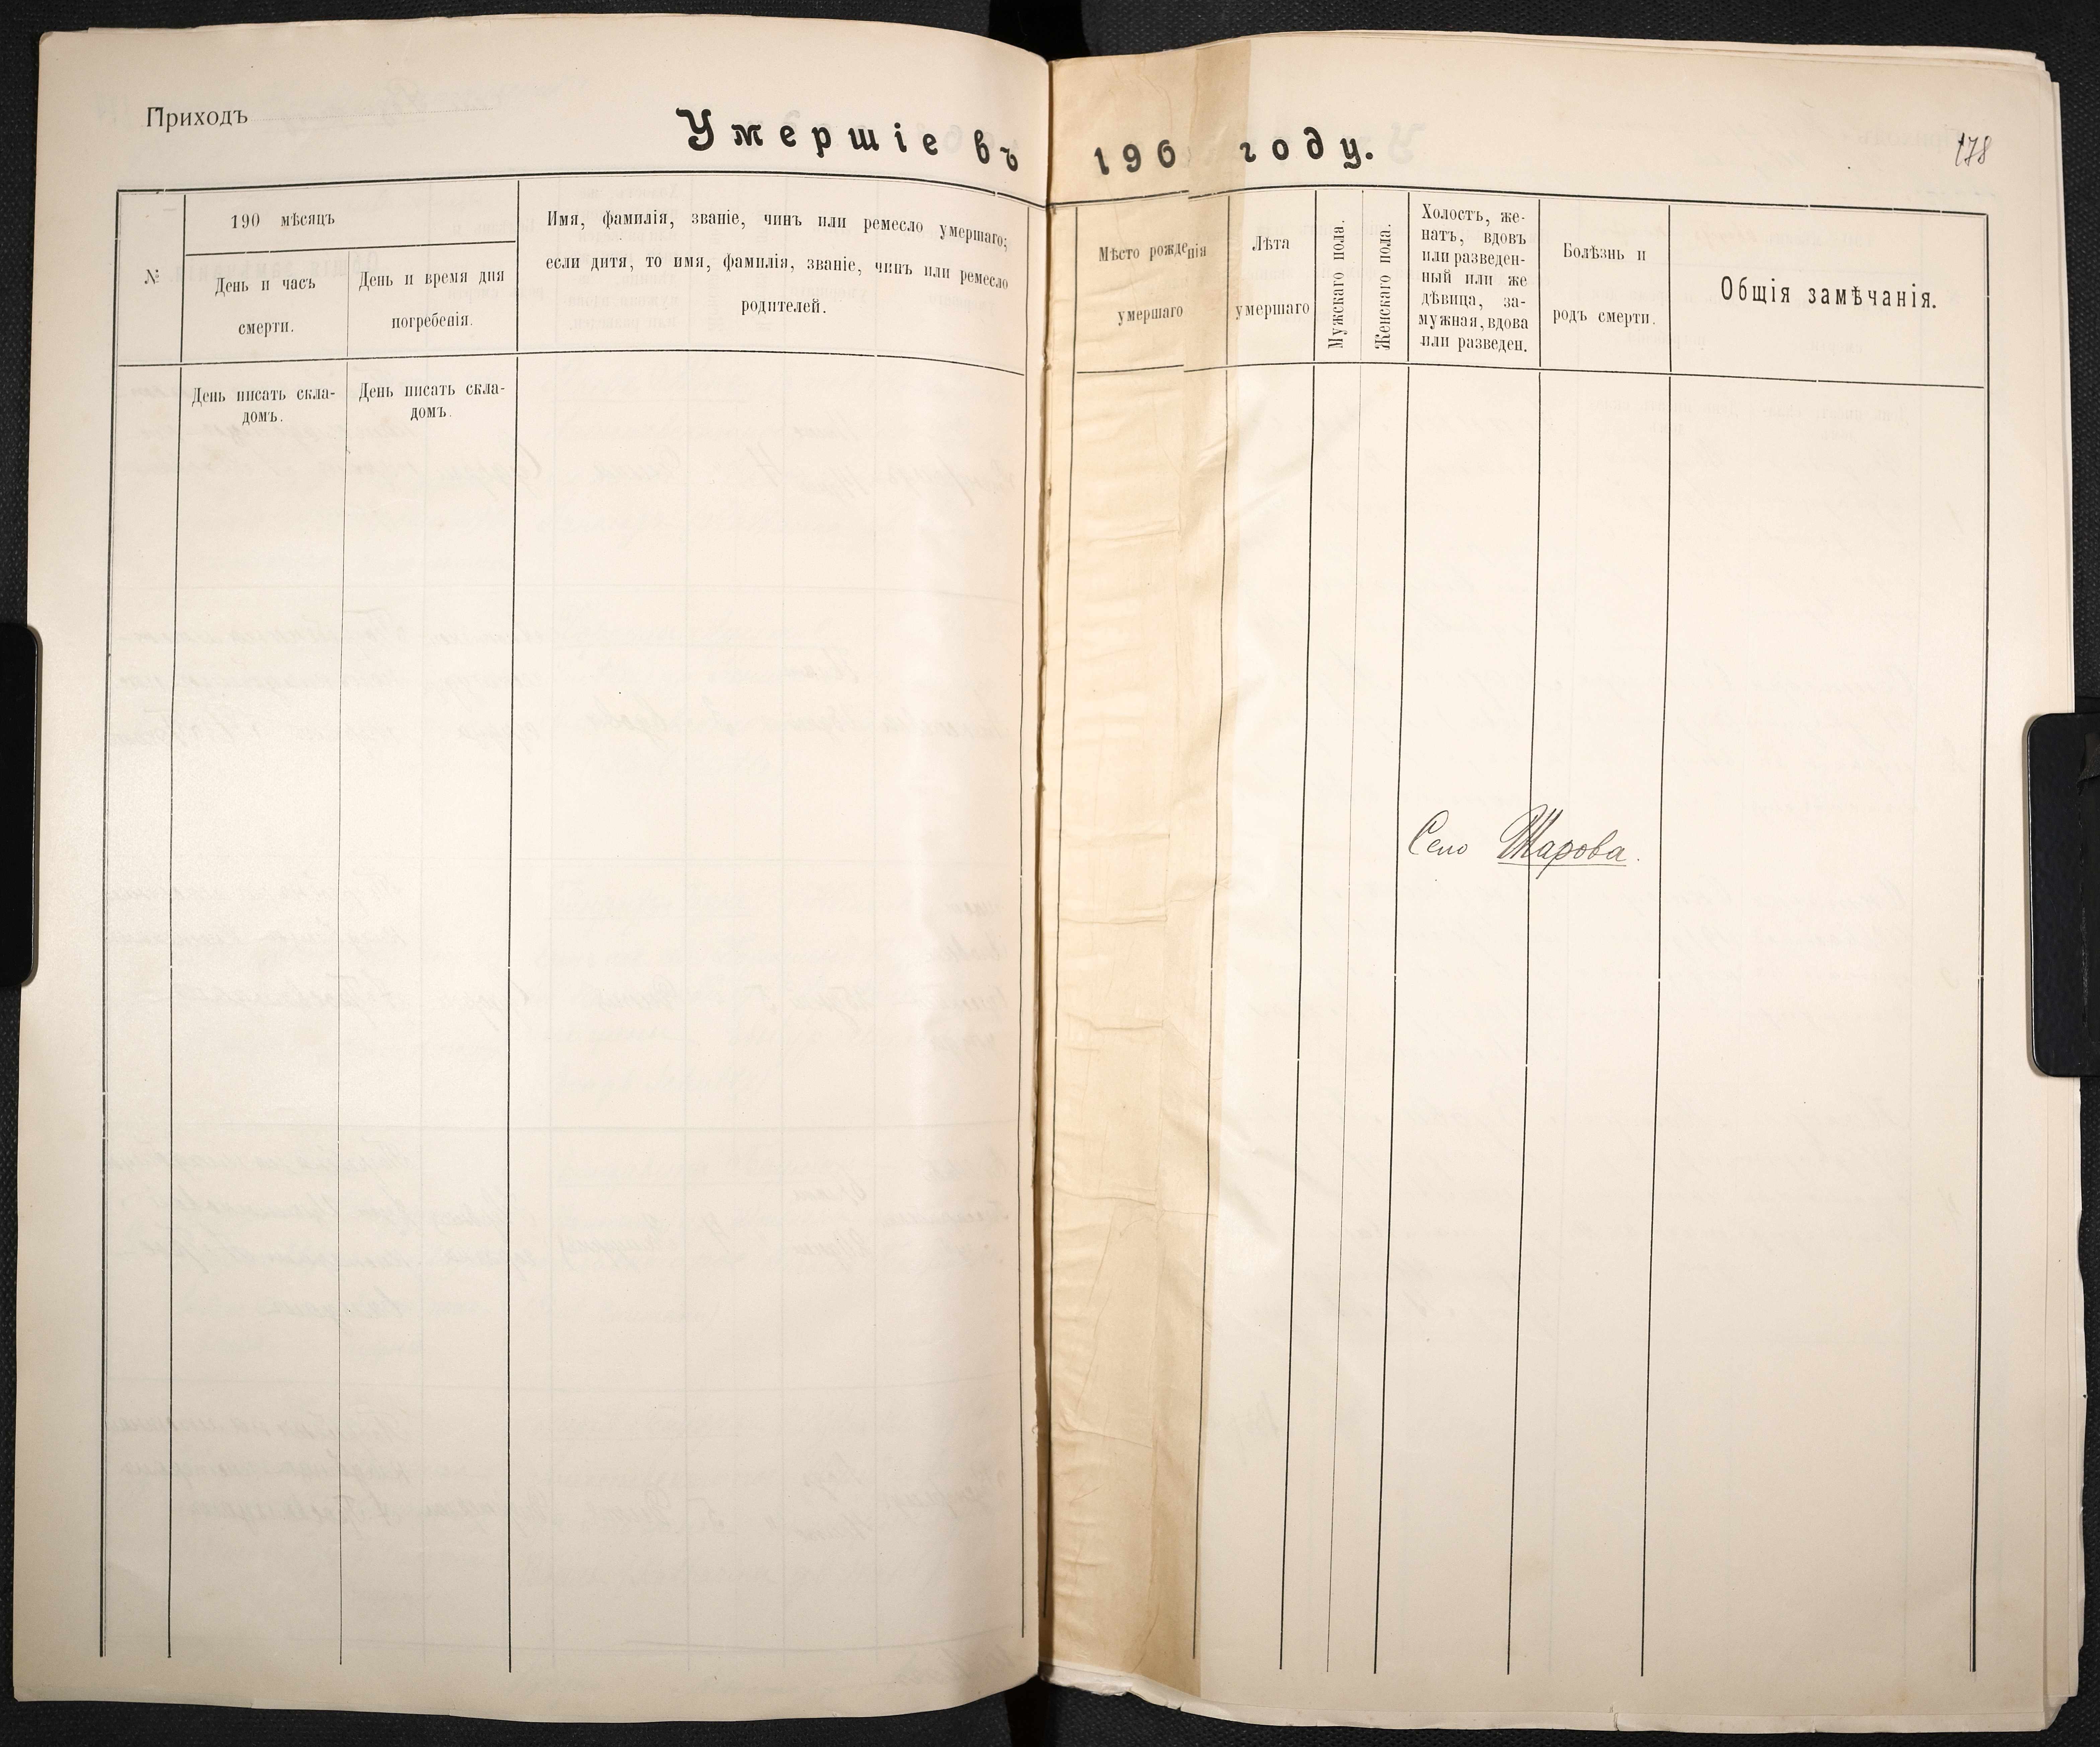 Приходъ
Умершіе въ 190 году.
178
№
190 мѣсяцъ
День и часъ
смерти.
День и время дня
погребенія.
Имя, фамилія, званіе, чинъ или ремесло умершаго;
если дитя, то имя, фамилія, званіе, чинъ или ремесло
родителей.
Мѣсто рожденія
умершаго
Лѣта
умершаго
Мужскаго пола.
Женскаго пола.
Холостъ, же-
натъ, вдовъ
или разведен-
ный или же
дѣвица, за-
мужная, вдова
или разведен.
Болѣзнь и
родъ смерти.
Общія замѣчанія.
День писать скла-
домъ.
День писать скла-
домъ.
Село Шарова.